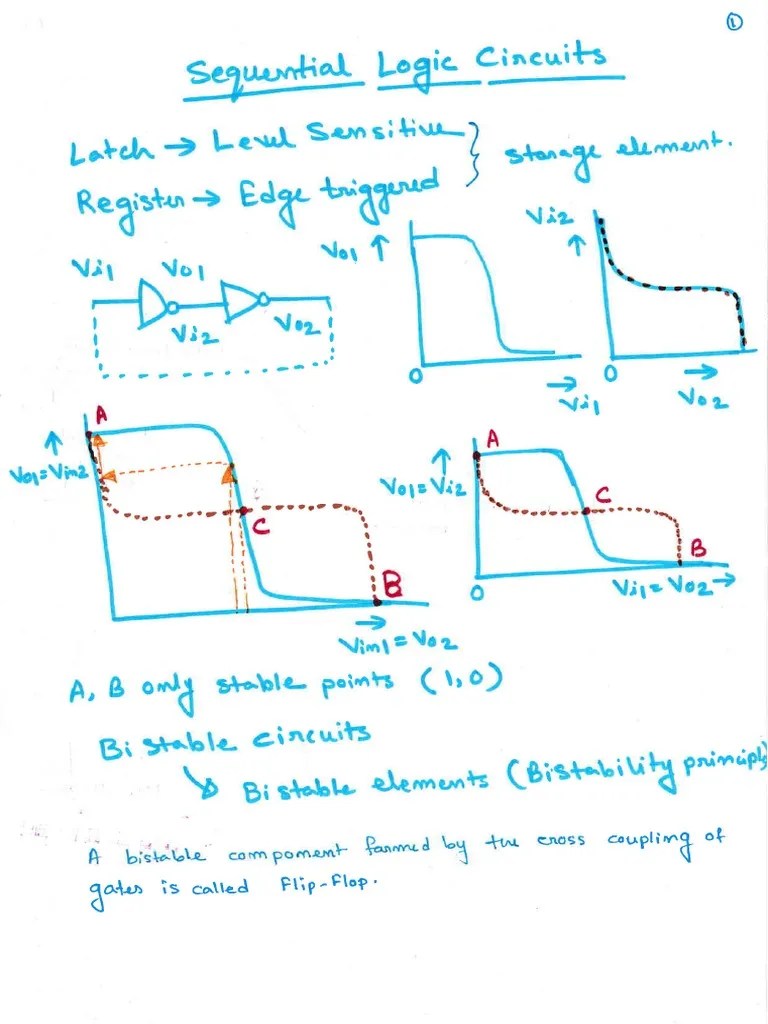 ①
Sequential Logic Circuits
Latch → Level Sensitive
Register → Edge triggered
} storage element.
Vi1 Vo1
Vi2 Vo2
Vo1 ↑
0
→ Vi1
Vi2 ↑
0
→ Vo2
A
↑ Vo1=Vin2
C
B
→ Vin1=Vo2
A
↑ Vo1=Vi2
C
B
0
Vi1=Vo2→
A, B only stable points (1,0)
Bi stable circuits
↘ Bi stable elements (Bistability principle)
A bistable compoment farmed by the cross coupling of
gates is called Flip-Flop.